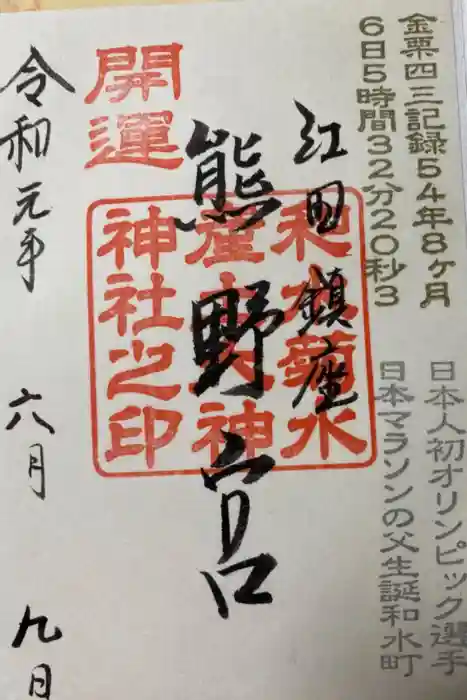 金栗四三記録54年8ヶ月
6日5時間32分20秒3
日本人初オリンピック選手
日本マラソンの父生誕和水町
江田鎮座
熊野宮
開運
和水菊水
産土大神
神社之印
令和元年
六月
九日